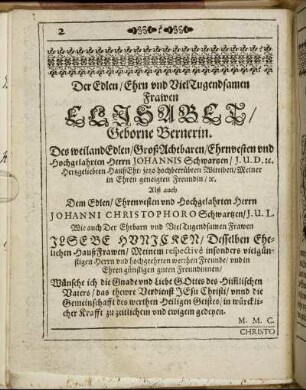 2
Der Edlen / Ehrn vnd VielTugendsamen
Frawen
ELISABET /
Geborne Bernerin.
Des weiland Edlen / GroßAchtbaren / Ehrnvesten vnd
Hochgelahrten Herrn JOHANNIS Schwartzen / J. U. D. ꝛc.
Hertzgeliebten HaußEhr / jetzo hochbetrübten Wittiben / Meiner
in Ehren geneigten Freundin / ꝛc.
Alß auch
Dem Edlen / Ehrenvesten vnd Hochgelahrten Herrn
JOHANNI CHRISTOPHORO Schwartzen / J. U. L.
Wie auch Der Ehrbarn vnd VielTugendsamen Frawen
ILSEBE HVNJCKEN / Desselben Ehe-
lichen HaußFrawen / Meinem respectivè insonders vielgün-
stigen Herrn vnd hochgeehrten werthen Freunde / vnd in
Ehren günstigen guten Freundinnen /
Wünsche ich die Gnade vnd Liebe GOttes des Himlischen
Vaters / das thewre Verdienst JEsu Christi / vnnd die
Gemeinschafft des werthen Heiligen Geistes / in würckli-
cher Krafft zu zeitlichem vnd ewigem gedeyen.
M. M. C.
CHRISTO